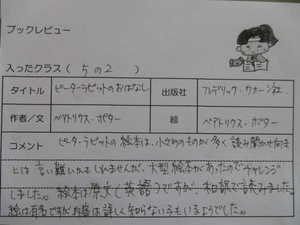 ブックレビュー
入ったクラス（ 5の2 ）
タイトル ピーターラビットのおはなし 出版社 フレデリック・ウォーン社
作者／文 ベアトリクス・ポター 絵 ベアトリクス・ポター
コメント ピーターラビットの絵本は、小さめのものが多く読み聞かせ向き
とは言い難いかもしれませんが、大型絵本があったのでチャレンジ
しました。絵本は原文（英語）ですが、和訳で読みました。
絵は有名ですがお話は詳しく知らない子もいるようでした。